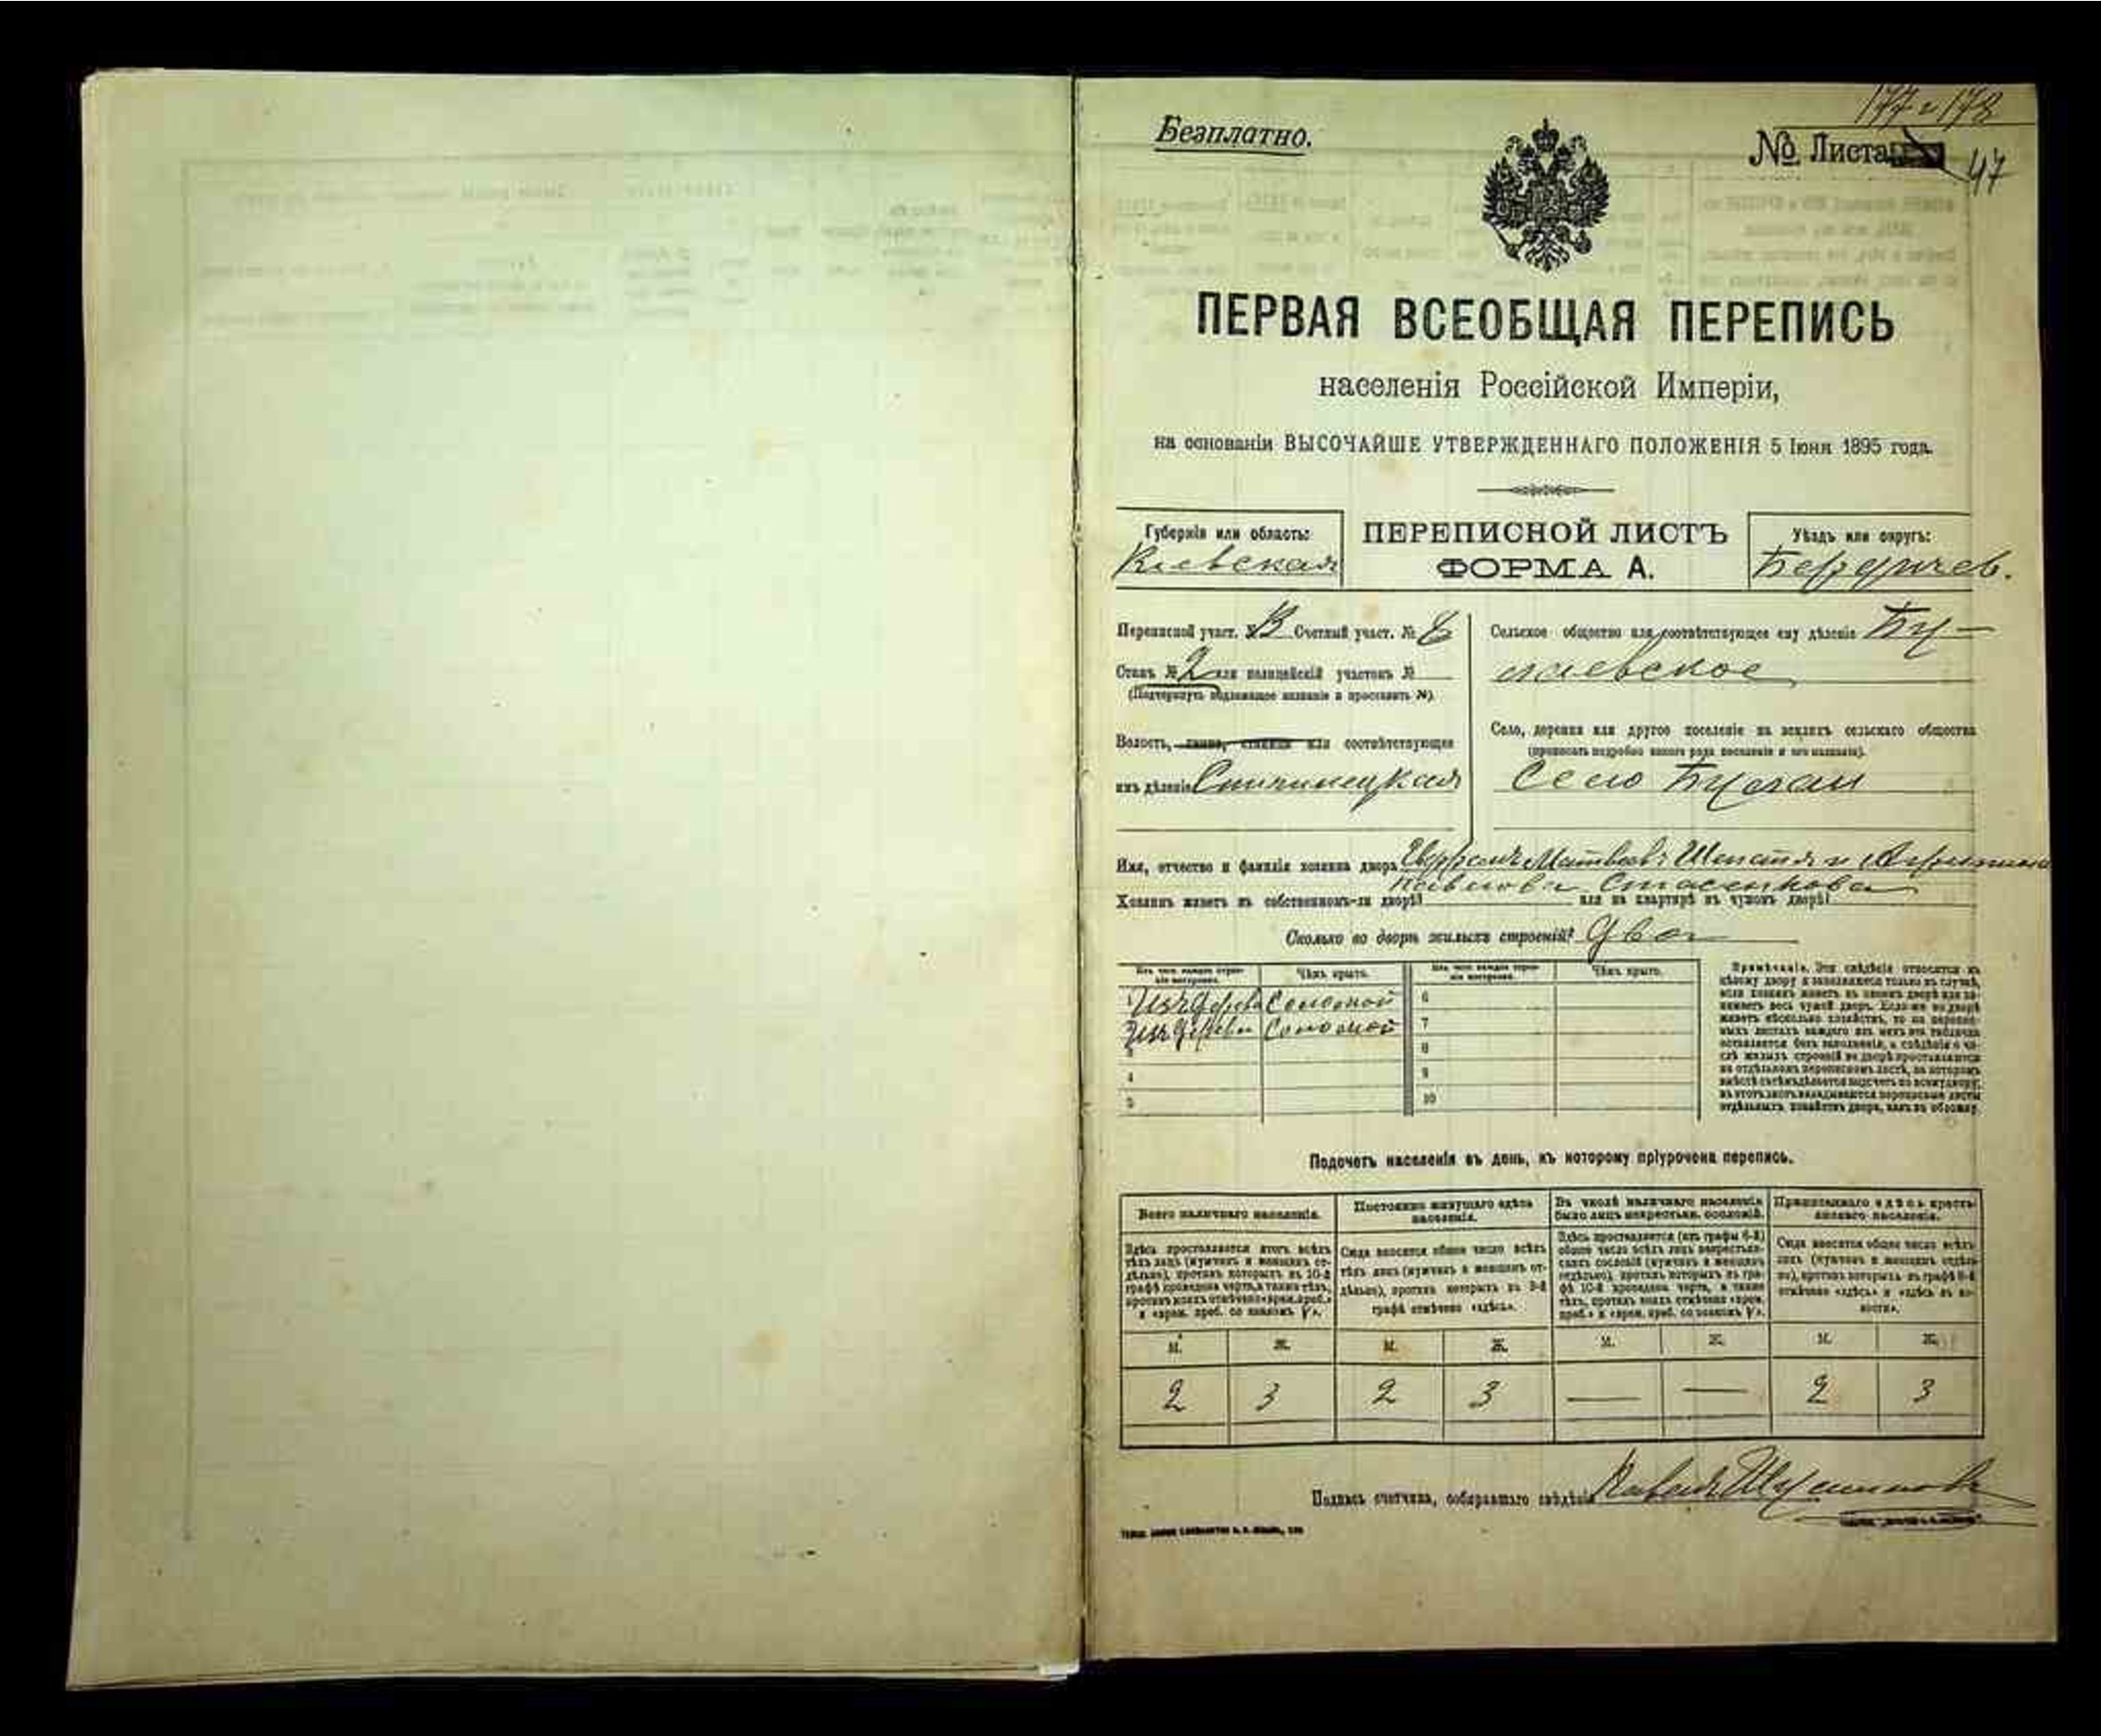 177 и 178
Безплатно.
№ Листа 47
ПЕРВАЯ ВСЕОБЩАЯ ПЕРЕПИСЬ
населенія Россійской Имперіи,
на основаніи ВЫСОЧАЙШЕ УТВЕРЖДЕННАГО ПОЛОЖЕНІЯ 5 Іюня 1895 года.
Губернія или область:
Кіевская
ПЕРЕПИСНОЙ ЛИСТЪ
ФОРМА А.
Уѣздъ или округъ:
Бердичев.
Переписной участ. № 13 Счетный участ. № 6
Станъ № 2 или полицейскій участокъ №
(Подчеркнуть надлежащее названіе и проставить №).
Волость, гмина, станица или соотвѣтствующее
имъ дѣленіе
Сельское общество или соотвѣтствующее ему дѣленіе
Село, деревня или другое поселеніе на земляхъ сельскаго общества
(прописать подробно какого рода поселеніе и его названіе).
Село
Имя, отчество и фамилія хозяина двора Матвѣевъ и
Павлова Стасенкова
Хозяинъ живетъ въ собственномъ-ли дворѣ? или на квартирѣ въ чужомъ дворѣ?
Сколько во дворѣ жилыхъ строеній? Два
Изъ чего каждое строе-
ніе построено.
Чѣмъ крыто.
Изъ чего каждое строе-
ніе построено.
Чѣмъ крыто.
1 Изъ дерева Соломой 6
Изъ дерева Соломой 7
3 8
4 9
5 10
Примѣчаніе. Эти свѣдѣнія относятся къ
цѣлому двору и заполняются только въ случаѣ,
если хозяинъ живетъ въ своемъ дворѣ или за-
нимаетъ весь чужой дворъ. Если же во дворѣ
живетъ нѣсколько хозяйствъ, то на перепис-
ныхъ листахъ каждаго изъ нихъ эта табличка
оставляется безъ заполненія, а свѣдѣнія о чи-
слѣ жилыхъ строеній во дворѣ проставляются
на отдѣльномъ переписномъ листѣ, на которомъ
вмѣстѣ съ тѣмъ дѣлается подсчетъ по всему двору;
въ этотъ листъ вкладываются переписные листы
отдѣльныхъ хозяйствъ двора, какъ въ обложку.
Подсчетъ населенія въ день, къ которому пріурочена перепись.
Всего наличнаго населенія.
Здѣсь проставляется итогъ всѣхъ
тѣхъ лицъ (мужчинъ и женщинъ от-
дѣльно), противъ которыхъ въ 10-й
графѣ проведена черта, а также тѣхъ,
противъ коихъ отмѣчено «врем. преб.»
Постоянно живущаго здѣсь
населенія.
Сюда вносится общее число всѣхъ
тѣхъ лицъ (мужчинъ и женщинъ от-
дѣльно), противъ которыхъ въ 9-й
графѣ отмѣчено «здѣсь».
Въ числѣ наличнаго населенія
было лицъ некрестьян. сословій.
Здѣсь проставляется (изъ графы 6-й)
общее число всѣхъ лицъ некрестьян-
скихъ сословій (мужчинъ и женщинъ
отдѣльно), противъ которыхъ въ гра-
фѣ 10-й проведена черта, а также
тѣхъ, противъ коихъ отмѣчено «врем.
Приписаннаго здѣсь кресть-
янскаго населенія.
Сюда вносится общее число всѣхъ
лицъ (мужчинъ и женщинъ отдѣль-
но), противъ которыхъ въ графѣ 8-й
отмѣчено «здѣсь» и «здѣсь въ во-
лости».
М. Ж. М. Ж. М. Ж. М. Ж.
2 3 2 3 — — 2 3
Подпись счетчика, собиравшаго свѣдѣнія